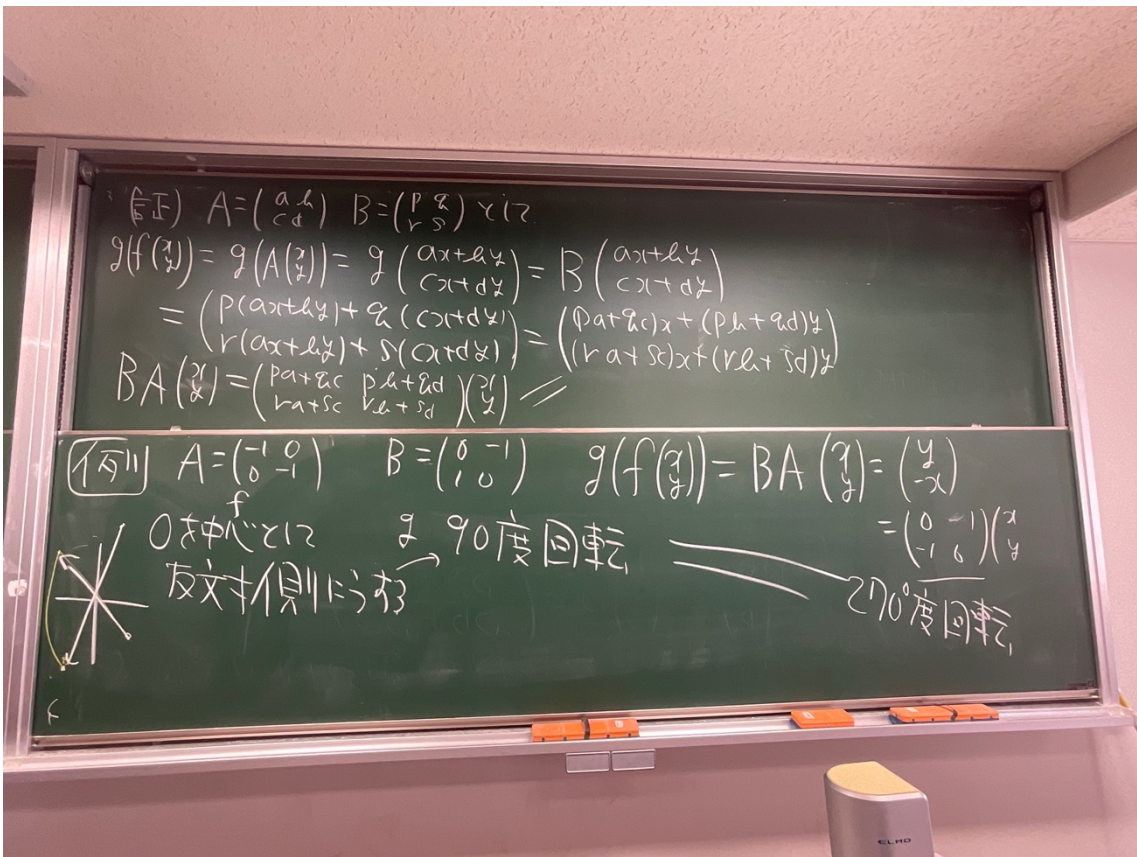 (証) A=(a b / c d) B=(p q / r s) として
g(f(x / y)) = g(A(x / y)) = g(ax+by / cx+dy) = B(ax+by / cx+dy)
= (p(ax+by)+q(cx+dy) / r(ax+by)+s(cx+dy)) = ((pa+qc)x+(pb+qd)y / (ra+sc)x+(rb+sd)y)
BA(x / y) = (pa+qc pb+qd / ra+sc rb+sd)(x / y) //
例 A=(-1 0 / 0 -1) B=(0 -1 / 1 0) g(f(x / y)) = BA(x / y) = (y / -x)
= (0 -1 / -1 0)(x / y)
f
0を中心として
反対側にうする
g 90度回転
270°度回転
ELMO